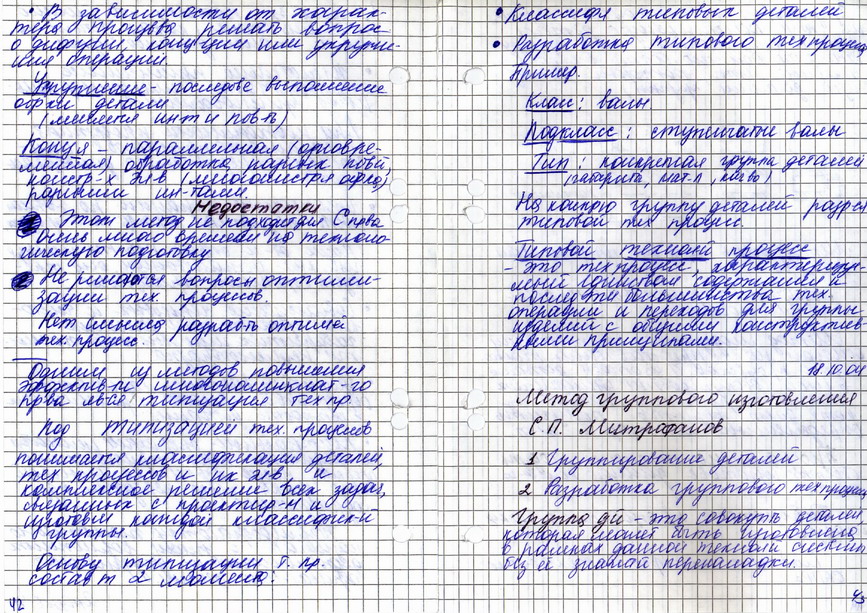 • В зависимости от харак-
тера произв-ва решать вопрос
о дифции, конц-ции или укрупне-
нии операций.
Укрупнение - последов выполнение
обрки детали
(меняется инт и пов-ть)
Конц-я - параллельная (одновре-
менная) обработка разных пов-й
разными ин-тами
Недостатки
1 Этот метод не подходит для С прва
Очень много времени на техноло-
гическую подготовку
2 Не решаются вопросы оптими-
зации тех. процессов.
Нет смысла разрабть оптимй
тех. процесс.
Одним из методов повышения
эффектив-ти многономенклат-го
прва явся типизация тех пр.
Под типизацией тех. процессов
понимается классификация деталей,
тех процессов и их эл-в и
комплексное решение всех задач,
связанных с проектир-м и
изготовл каждой классифик-й
группы.
Основу типизации т. пр.
состав т 2 момента:
42
• Классифя типовых деталей
• Разработка типового тех процесса
Пример.
Класс: валы
Подкласс: ступенчатые валы
Тип: конкретная группа деталей
(габариты, мат-л, кол-во)
На каждую группу деталей разрся
типовой тех процесс.
Типовой технолй процесс
- это тех процесс, характеризуе-
мый единством содержания и
послед-ти большинства тех.
операций и переходов для группы
изделий с общими конструктив
ными принципами.
18 10 04
Метод группового изготовления
С.П. Митрофанов
1 Группирование деталей
2 Разработка группового тех процесса
Группа дй - это совокупть деталей
которая может быть изготовлена
в рамках данной технолй системы
без её значмй переналадки.
43